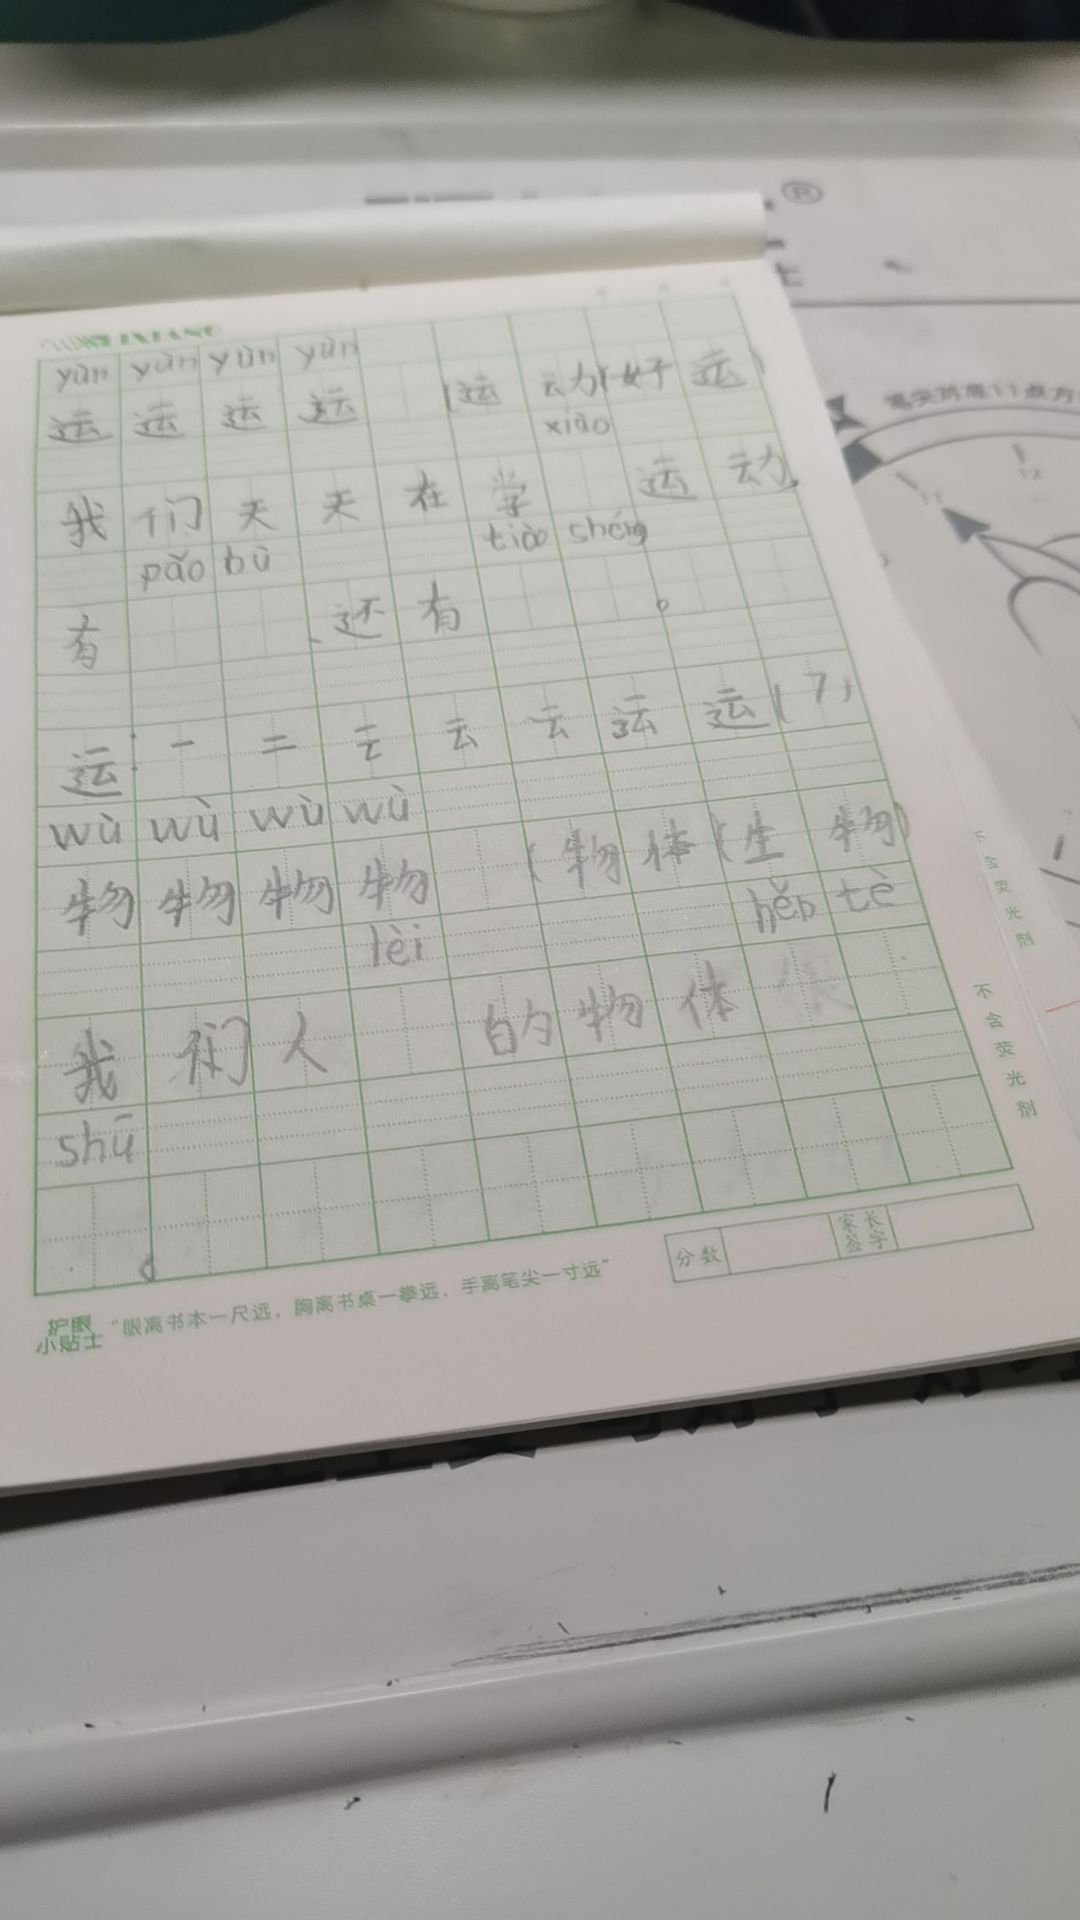 yùn yùn yùn yùn
运 运 运 运 (运 动(好 运)
xiào
我 们 天 天 在 学 运 动,
pǎo bù tiào shéng
有 、还 有 。
运: 一 二 云 云 云 运 运 (7)
wù wù wù wù
物 物 物 物 (物 体 (生 物)
lèi hěn tè
我 们 人 的 物 体
shū
。
分数
家长签字
护眼小贴士 “眼离书本一尺远，胸离书桌一拳远，手离笔尖一寸远”
不含荧光剂
不含荧光剂
笔尖对准11点方
11
12
®